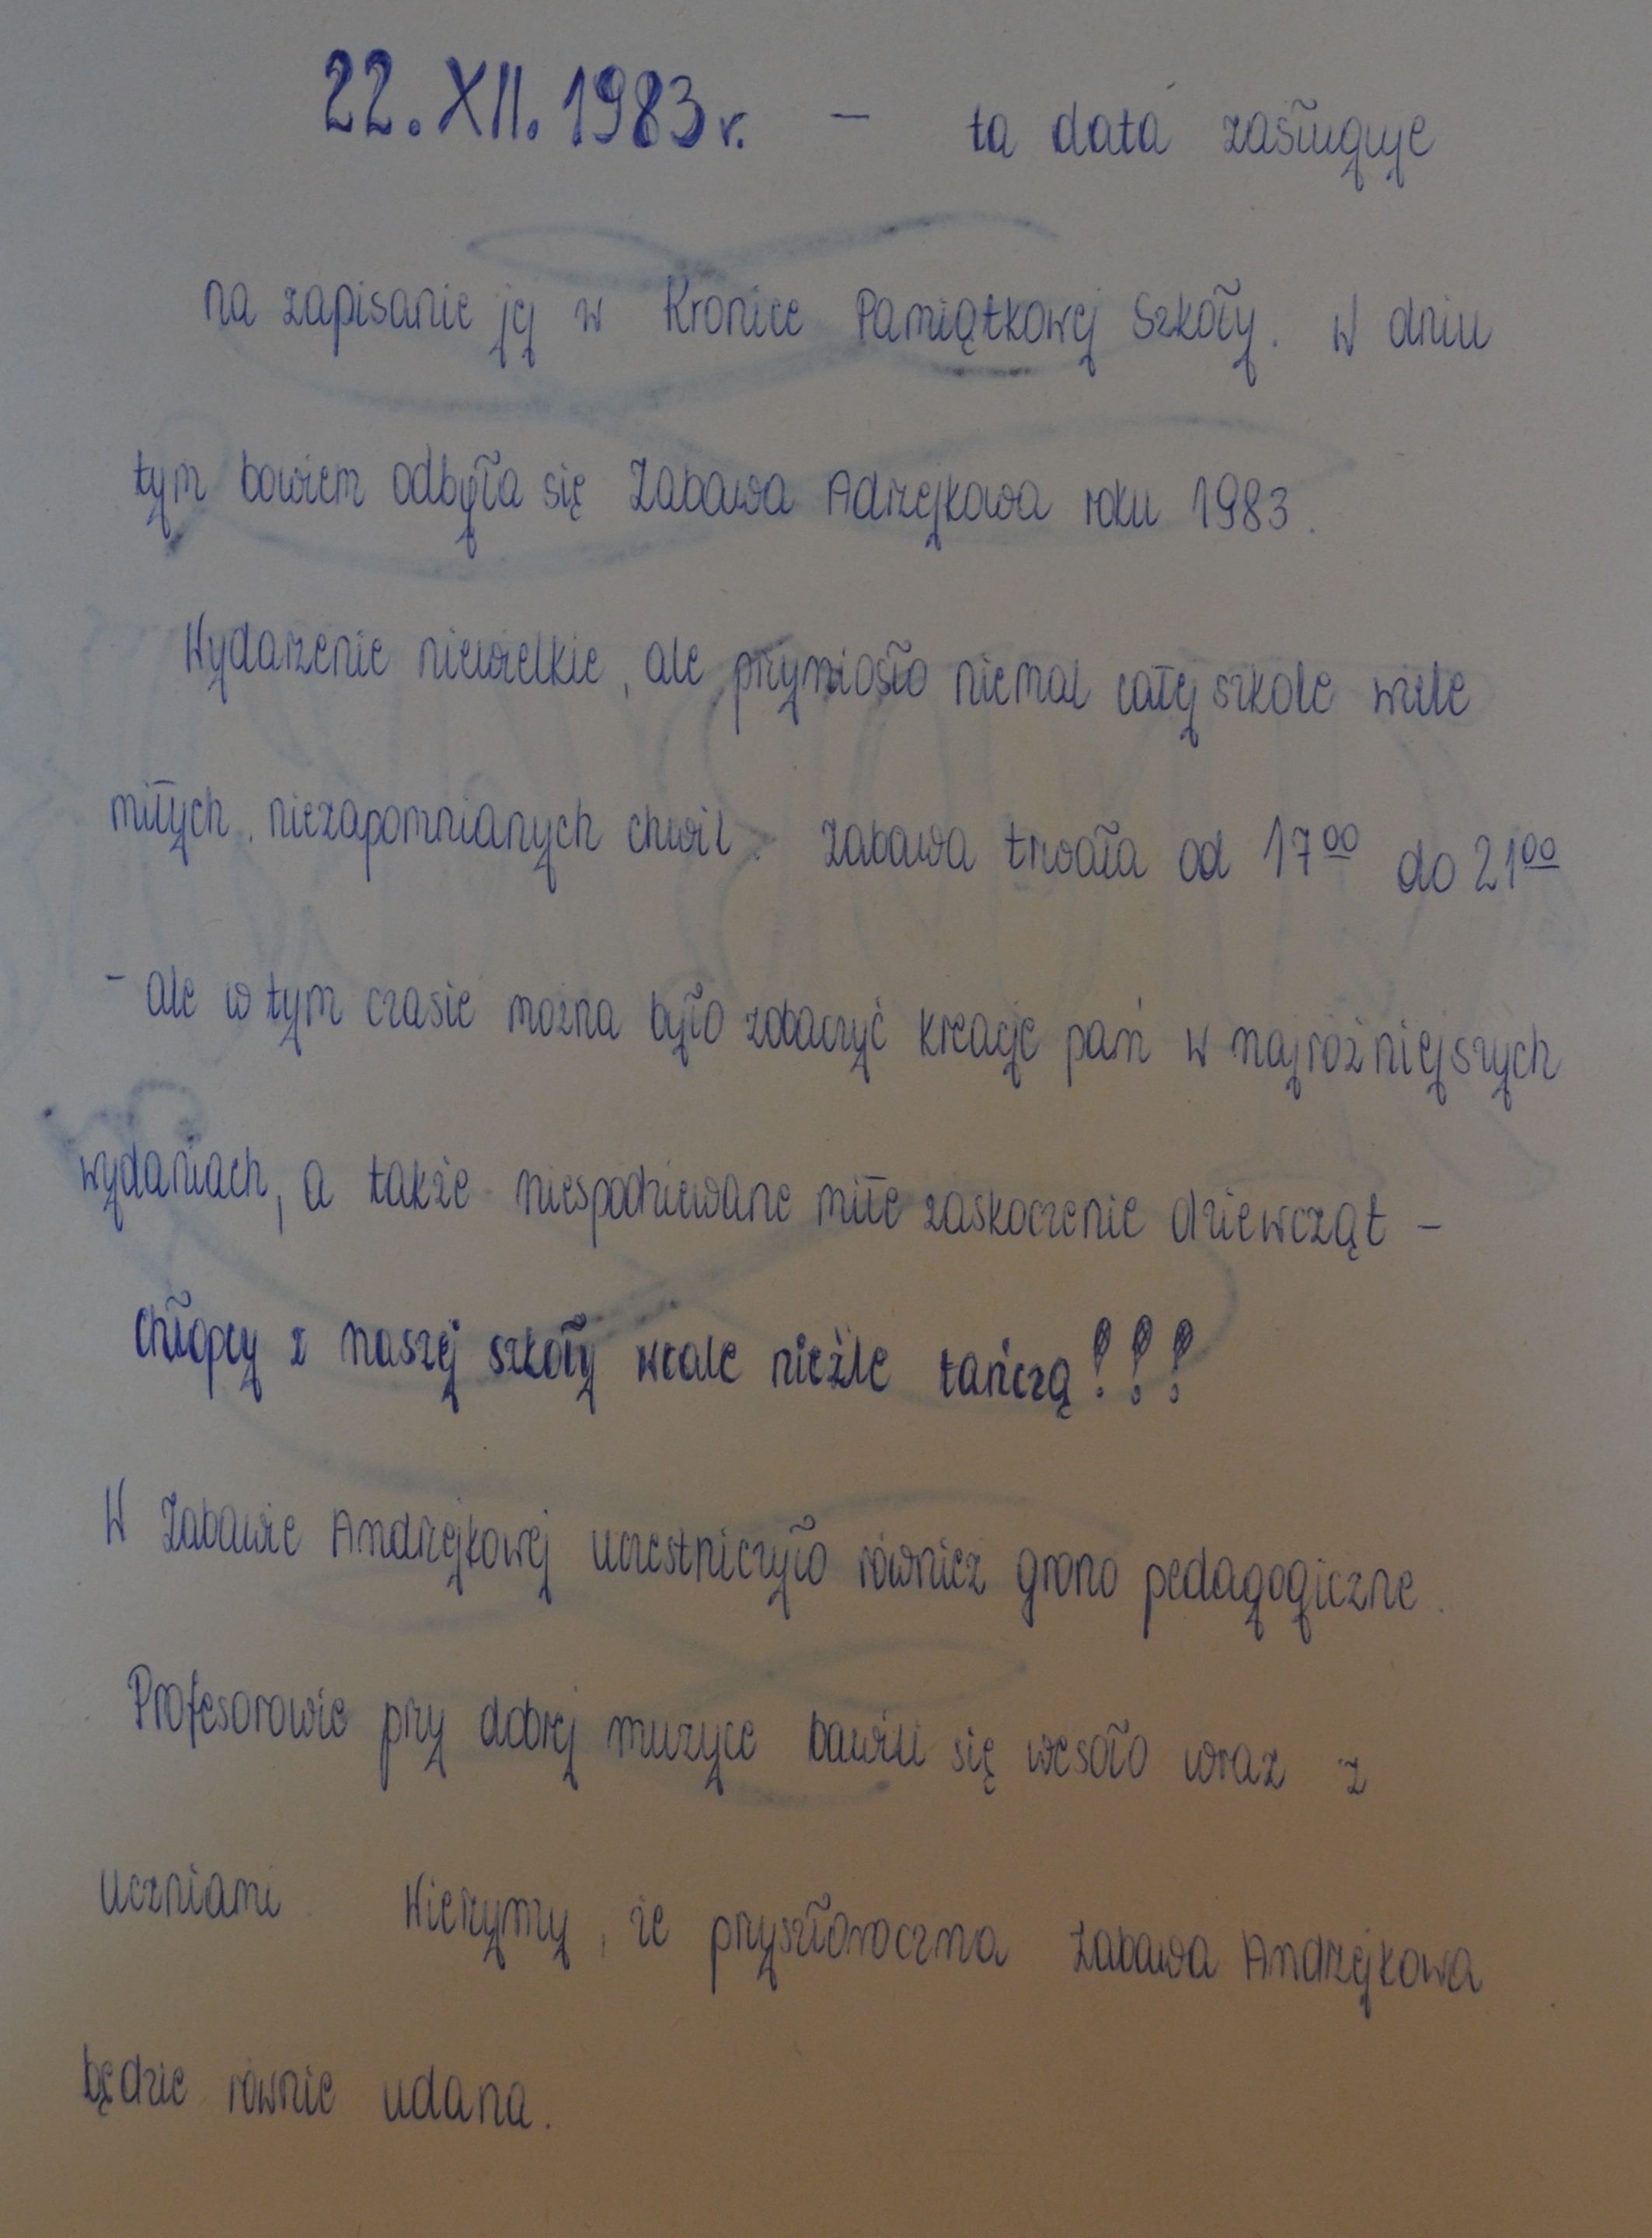 22. XII. 1983 r. – ta data zasługuje
na zapisanie jej w Kronice Pamiątkowej Szkoły. W dniu
tym bowiem odbyła się Zabawa Adrzejkowa roku 1983.
Wydarzenie niewielkie, ale przyniosło niemal całej szkole wiele
miłych, niezapomnianych chwil. Zabawa trwała od 17⁰⁰ do 21⁰⁰
– ale w tym czasie można było zobaczyć kreacje pań w najróżniejszych
wydaniach, a także niespodziewane miłe zaskoczenie dziewcząt –
chłopcy z naszej szkoły wcale nieźle tańczą!!!
W Zabawie Andrzejkowej uczestniczyło również grono pedagogiczne.
Profesorowie przy dobrej muzyce bawili się wesoło wraz z
uczniami. Wierzymy, że przyszłoroczna Zabawa Andrzejkowa
będzie równie udana.